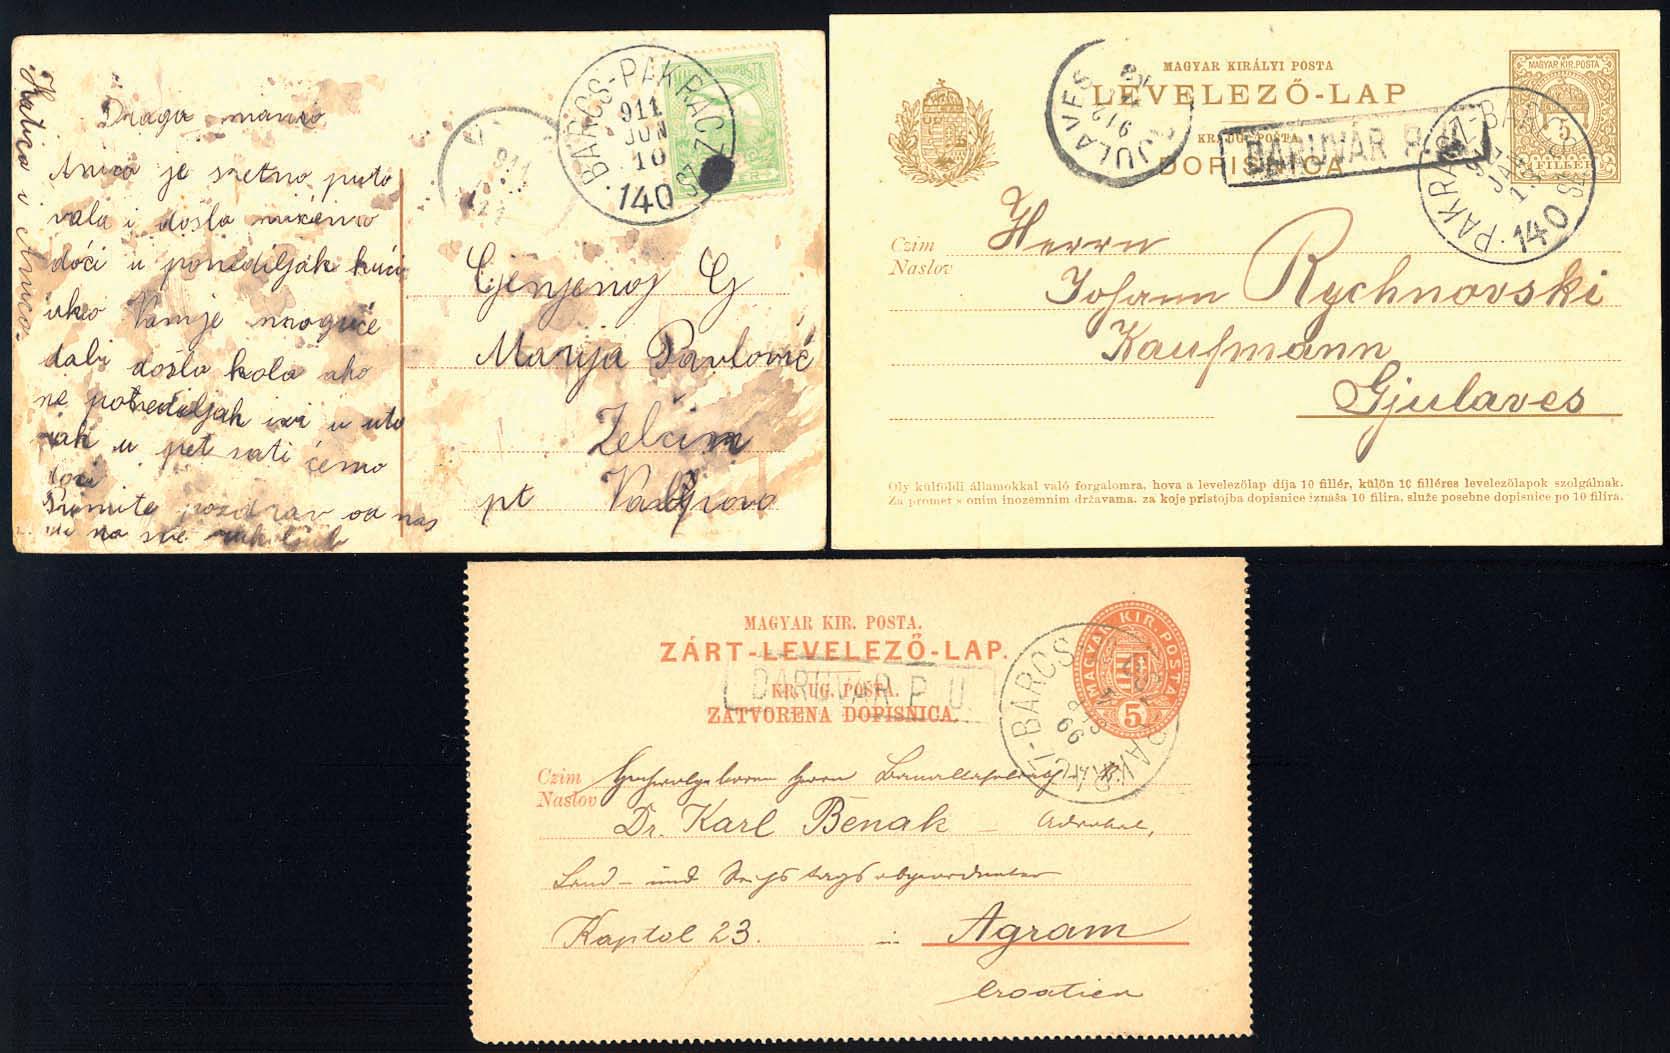 Draga manio
Anica je sretno puto
vala i došla mićemo
doći u ponediljak kući
ako Vam je moguće
dabi došla kola ako
ne ponediljak izvi u uto
rak u pet sati ćemo
doći
Primite pozdrav od nas
na sve
Katica i Anica
MAGYAR KIR. POSTA
BARCS-PAKRACZ
911
JUN
10
140 SZ
911
Cjenjenoj G
Marija Pavlović
Zelčin
pt Valpovo
MAGYAR KIRÁLYI POSTA
LEVELEZŐ-LAP
KR. UG. POŠTA
DOPISNICA
MAGYAR KIR. POSTA
5
FILLÉR
GJULAVES
912
DARUVÁR P. U.
PAKRÁCZ-BARCS
140 SZ
Czim
Naslov
Herrn
Johann Rychnovski
Kaufmann
Gjulaves
Oly külföldi államokkal való forgalomra, hova a levelezőlap díja 10 fillér, külön 10 filléres levelezőlapok szolgálnak.
Za promet s onim inozemnim državama, za koje pristojba dopisnice iznaša 10 filira, služe posebne dopisnice po 10 filira.
MAGYAR KIR. POSTA.
ZÁRT-LEVELEZŐ-LAP.
KR. UG. POŠTA.
ZATVORENA DOPISNICA.
MAGYAR KIR. POSTA
5
DARUVÁR P. U.
PAKRÁCZ-BARCS
99
Czim
Naslov
Hochwolgeboren Herrn
Dr. Karl Benak – Advokat,
Land- und Reichstagsabgeordneter
Kaptol 23. in Agram
Croatien